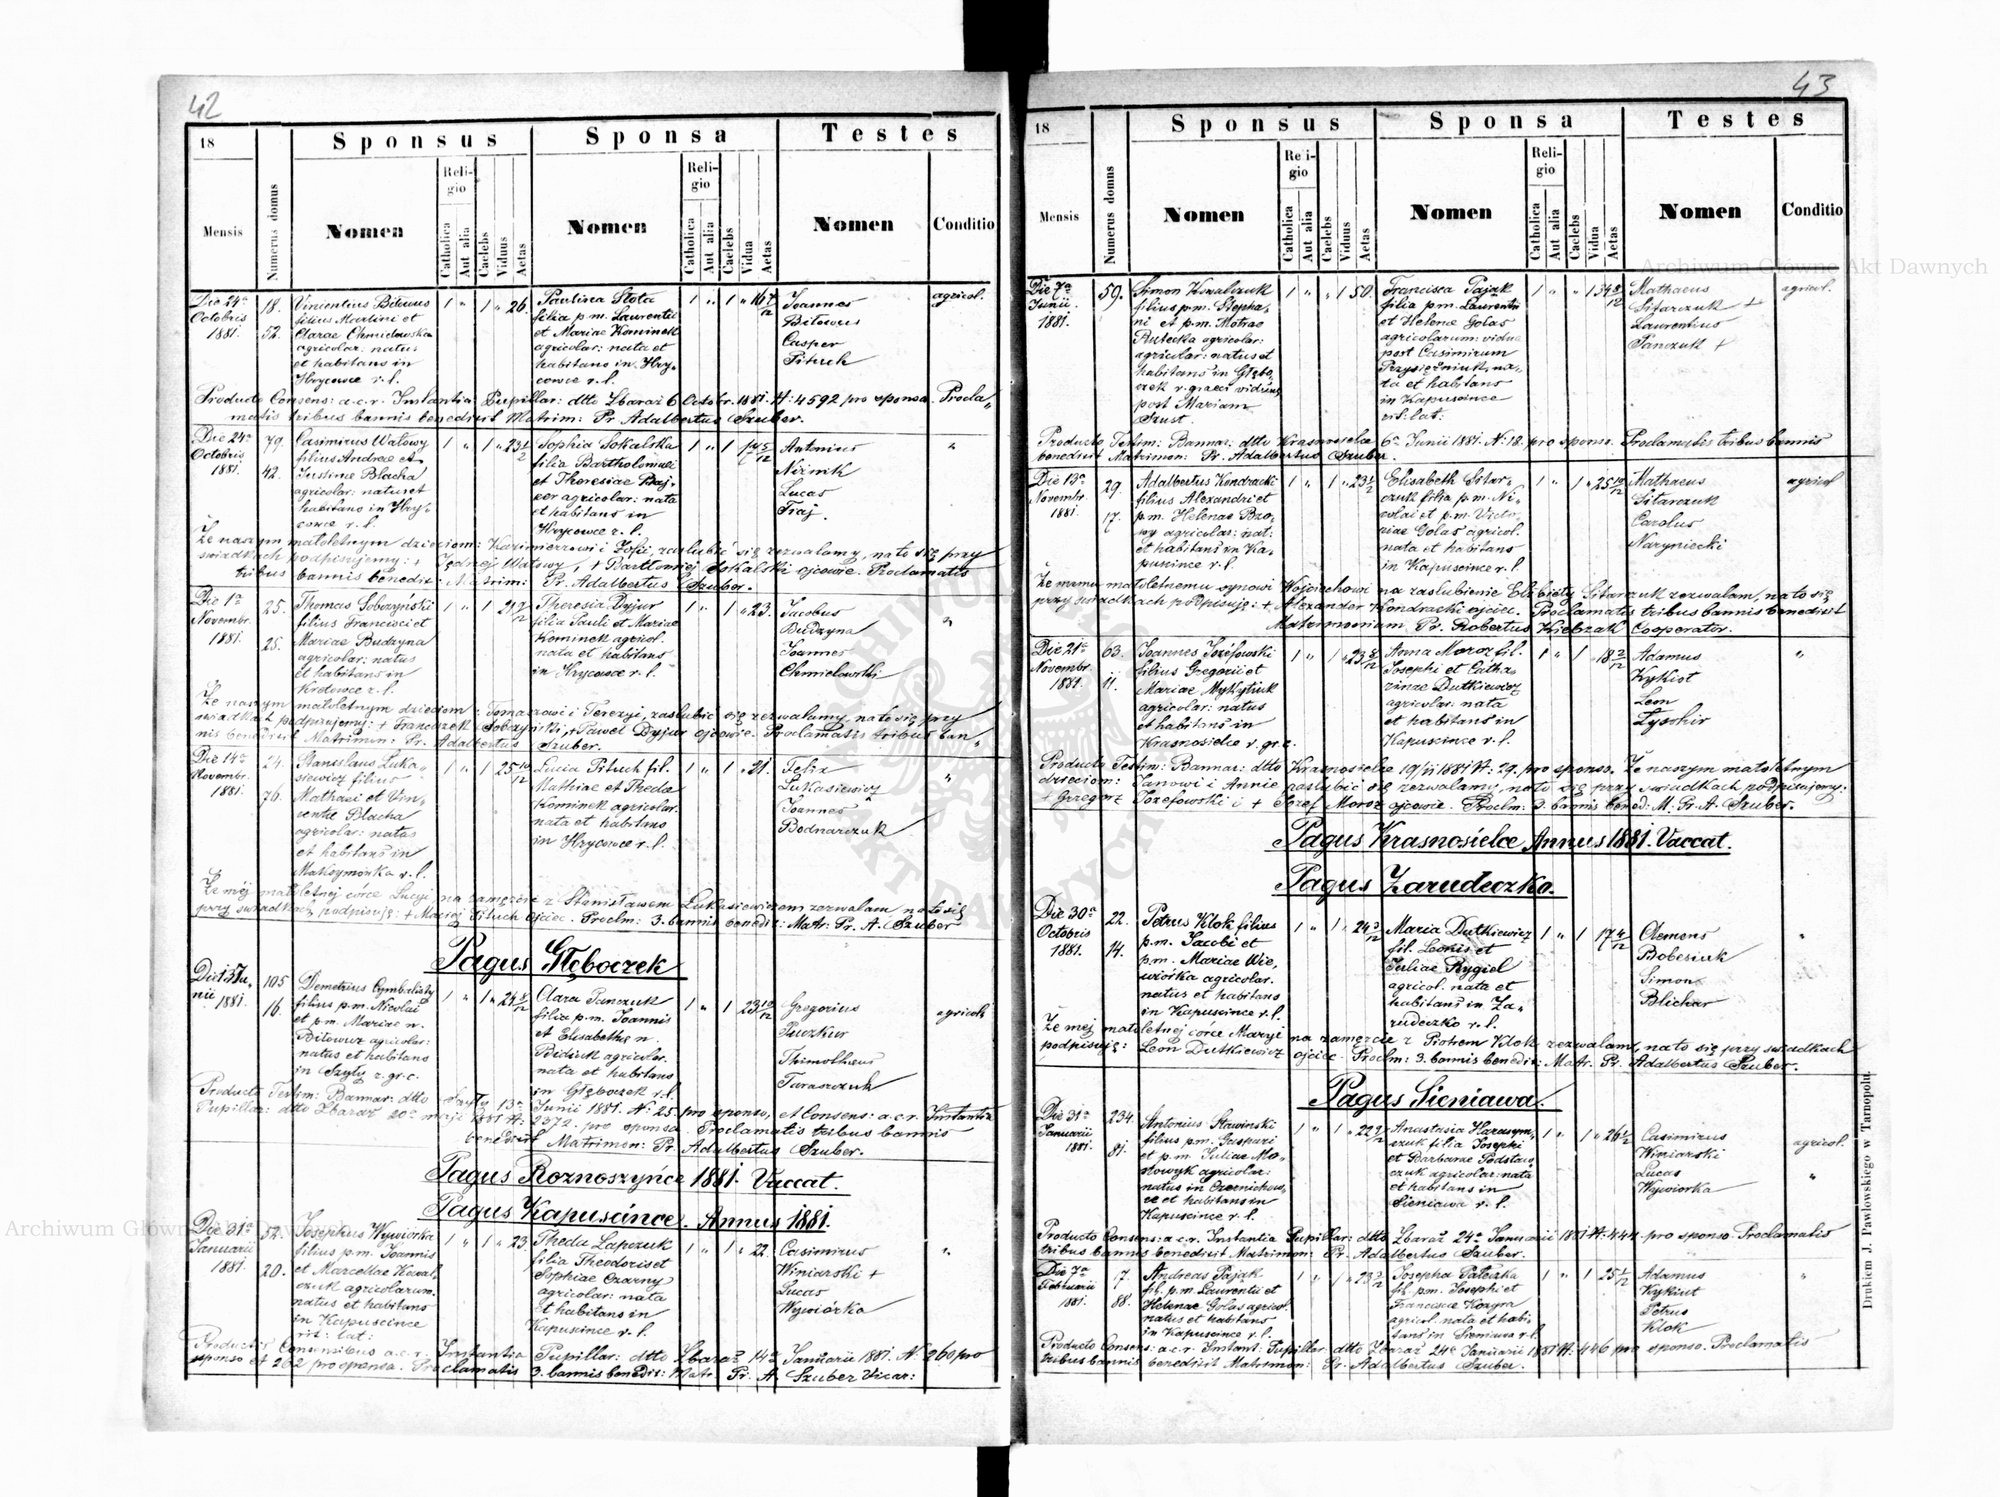 42
18
Sponsus
Sponsa
Testes
Mensis
Numerus domus
Nomen
Religio
Catholica
Aut alia
Caelebs
Viduus
Aetas
Nomen
Religio
Catholica
Aut alia
Caelebs
Vidua
Aetas
Nomen
Conditio
Die 24a
Octobris
1881.
18.
52.
Vincentius Bitowus
filius Martini et
Clarae Chmielowska
agricolar: natus
et habitans in
Hrycowce r. l.
1 " 1 " 26.
Paulina Slota
filia p.m. Laurentii
et Mariae Kominek
agricolar: nata et
habitans in Hry-
cowce r. l.
Joannes
Bitowus
Casper
Pituch
agricol.
Producto Consens: a.c.r. Instantia Pupillar: dtto Zbaraż 6 Octobr. 1881. N: 4592 pro sponsa. Procla"
matis tribus bannis benedixit Matrim: Pr. Adalbertus Szuber.
Die 24a
Octobris
1881.
79.
42.
Casimirus Walowy
filius Andreae et
Justinae Blacha
agricolar: natus et
habitans in Hry-
cowce r. l.
Sophia Sokalska
filia Bartholomaei
et Theresiae
agricolar: nata
et habitans in
Hrycowce r. l.
Antonius
Niżnik
Lucas
Fraj.
Że naszym małoletnym dzieciom: Kazimierzowi i Zofii, zaslubić się zezwalamy, na to się przy
świadkach podpisujemy: + Jędrzej Walowy, + Bartłomiej Sokalski ojcowie. Proclamatis
tribus bannis benedix: Matrim: Pr. Adalbertus Szuber.
Die 1a
Novembr.
1881.
25.
25.
Thomas Sobczyński
filius Francisci et
Mariae Budzyna
agricolar: natus
et habitans in
Kretowce r. l.
Theresia Dyjur
filia Pauli et Mariae
Kominek agricol.
nata et habitans
in Hrycowce r. l.
1 " 1 " 23.
Jacobus
Budzyna
Joannes
Chmielowski
Że naszym małoletnym dzieciom: Tomaszowi i Terezyi, zaslubić się zezwalamy, na to się przy
świadkach podpisujemy: + Franciszek Sobczyński, + Paweł Dyjur ojcowie. Proclamatis tribus ban"
nis benedixit Matrimon: Pr. Adalbertus Szuber.
Die 14a
Novembr.
1881.
24.
76.
Stanislaus Luka-
siewicz filius
Mathaei et Vin-
centae Blacha
agricolar: natus
et habitans in
Maksymówka r. l.
Lucia Pituch fil.
Mathiae et Theclae
Kominek agricolar.
nata et habitans
in Hrycowce r. l.
1 " 1 " 21.
Felix
Lukasiewicz
Joannes
Bodnarczuk
Że mej małoletnej córce Lucyi na zamęście z Stanisławem Lukasiewiczem zezwalam, na to się
przy świadkach podpisuję: + Maciej Pituch ojciec. Proclm: 3. bannis benedix: Matr: Pr. A. Szuber
Pagus Głęboczek
Die 13 Ju-
nii 1881.
105
16.
Demetrius Cymbalisty
filius p.m. Nicolai
et p.m. Mariae n.
Bitowicz agricolar:
natus et habitans
in Szyły r. gr. c.
Clara Panczuk
filia p.m. Joannis
et Elisabethae n.
agricolar.
nata et habitans
in Głęboczek r. l.
Gregorius
Thimotheus
Taraszczuk
agricol.
Producto Testim: Bannar: dtto Szyły 13a Junii 1881. N: 25. pro sponso, et Consens: a.c.r. Instantia
Pupillar: dtto Zbaraż 20a maji 1881 N: 2372. pro sponsa. Proclamatis tribus bannis
benedixit Matrimon: Pr. Adalbertus Szuber.
Pagus Roznoszyńce 1881. Vaccat.
Pagus Kapuscince. Annus 1881.
Die 31a
Januarii
1881.
52.
20.
Josephus Wywiórka
filius p.m. Joannis
et Marcellae Kowal-
czuk agricolarum.
natus et habitans
in Kapuscince
rit: lat:
1 " 1 " 23.
Thecla Lapczuk
filia Theodori et
Sophiae Czarny
agricolar: nata
et habitans in
Kapuscince r. l.
1 " 1 " 22.
Casimirus
Winiarski +
Lucas
Wywiórka
Productis Consensibus a.c.r. Instantia Pupillar: dtto Zbaraż 14a Januarii 1881. N: 260 pro
sponso et 262 pro sponsa. Proclamatis 3. bannis benedix: Matr. Pr. A. Szuber Vicar:
43
18
Sponsus
Sponsa
Testes
Mensis
Numerus domus
Nomen
Religio
Catholica
Aut alia
Caelebs
Viduus
Aetas
Nomen
Religio
Catholica
Aut alia
Caelebs
Vidua
Aetas
Nomen
Conditio
Die 7a
Junii
1881.
59.
Simon Kowalczuk
filius p.m. Stepha-
ni et p.m. Motrae
Rutecka agricolar:
agricolar: natus et
habitans in Głębo-
czek r. graeci viduus
post Mariam
Szust.
1 " " 1 50.
Francisca Pająk
filia p.m. Laurentii
et Helenae Golas
agricolarum: vidua
post Casimirum
Przysiężniuk, na-
ta et habitans
in Kapuscince
rit: lat:
Mathaeus
Sitarczuk +
Laurentius
Panczuk +
agricol.
Producto Testim: Bannar: dtto Krasnosielce 6a Junii 1881. N: 18. pro sponso. Proclamatis tribus bannis
benedixit Matrimon: Pr. Adalbertus Szuber.
Die 13a
Novembr.
1881.
29.
17.
Adalbertus Kondracki
filius Alexandri et
p.m. Helenae Bzo-
wy agricolar: nat:
et habitans in Ka-
puscince r. l.
Elisabeth Sitar-
czuk filia p.m. Ni-
colai et p.m. Victo-
riae Golas agricol.
nata et habitans
in Kapuscince r. l.
Mathaeus
Sitarczuk
Carolus
Naryniecki
agricol
Że memu małoletnemu synowi Wojciechowi na zaslubienie Elżbiety Sitarczuk zezwalam, na to się
przy świadkach podpisuję: + Alexander Kondracki ojciec. Proclamatis tribus bannis benedixit
Matrimonium Pr. Robertus Kiebzak Cooperator.
Die 21a
Novembr.
1881.
63.
11.
Joannes Józefowski
filius Gregorii et
Mariae Mykytiuk
agricolar: natus
et habitans in
Krasnosielce r. gr. c.
Anna Moroz fil.
Josephi et Catha-
rinae Dutkiewicz
agricolar: nata
et habitans in
Kapuscince r. l.
Adamus
Kykiot
Leon
Łysohir
Producto Testim: Bannar: dtto Krasnosielce 19/11 1881 N: 29. pro sponso. Że naszym małoletnym
dzieciom: Janowi i Annie zaslubić się zezwalamy, na to się przy świadkach podpisujemy:
+ Grzegorz Józefowski i + Józef Moroz ojcowie. Proclm: 3. bannis bened: M: Pr. A. Szuber.
Pagus Krasnosielce Annus 1881. Vaccat.
Pagus Zarudeczko.
Die 30a
Octobris
1881.
22.
14.
Petrus Klok filius
p.m. Jacobi et
p.m. Mariae Wie-
wiórka agricolar.
natus et habitans
in Kapuscince r. l.
Maria Dutkiewicz
fil. Leonis et
Juliae Rygiel
agricol. nata et
habitans in Za-
rudeczko r. l.
Clemens
Bobesiuk
Simon
Blichar
Że mej małoletnej córce Maryi na zamęście z Piotrem Klok zezwalam, na to się przy świadkach
podpisuję: Leon Dutkiewicz ojciec. Proclm: 3. bannis benedix: Matr. Pr. Adalbertus Szuber.
Pagus Sieniawa.
Die 31a
Januarii
1881.
234.
81.
Antonius Slawinski
filius p.m. Gaspari
et p.m. Juliae Mo-
slowyk agricolar:
natus in Czernichow-
ce et habitans in
Kapuscince r. l.
Anastasia Harasym-
czuk filia Josephi
et Barbarae Podstaw-
czuk agricolar: nata
et habitans in
Sieniawa r. l.
Casimirus
Winiarski
Lucas
Wywiorka
agricol.
Producto Consens: a.c.r. Instantia Pupillar: dtto Zbaraż 24a Januarii 1881 N: 444 pro sponso. Proclamatis
tribus bannis benedixit Matrimon: Pr. Adalbertus Szuber.
Die 7a
Februarii
1881.
7.
88.
Andreas Pająk
fil. p.m. Laurentii et
Helenae Golas agricol.
natus et habitans
in Kapuscince r. l.
Josepha Pałeczka
fil. p.m. Josephi et
Franciscae Kozyra
agricol. nata et habi-
tans in Sieniawa r. l.
Adamus
Kykiut
Petrus
Klok
Producto Consens: a.c.r. Instant: Pupillar: dtto Zbaraż 24a Januarii 1881 N: 446 pro sponso. Proclamatis
tribus bannis benedixit Matrimon: Pr. Adalbertus Szuber.
Drukiem J. Pawłowskiego w Tarnopolu.
Archiwum Główne Akt Dawnych
Archiwum Główne Akt Dawnych
ARCHIWUM GŁÓWNE AKT DAWNYCH